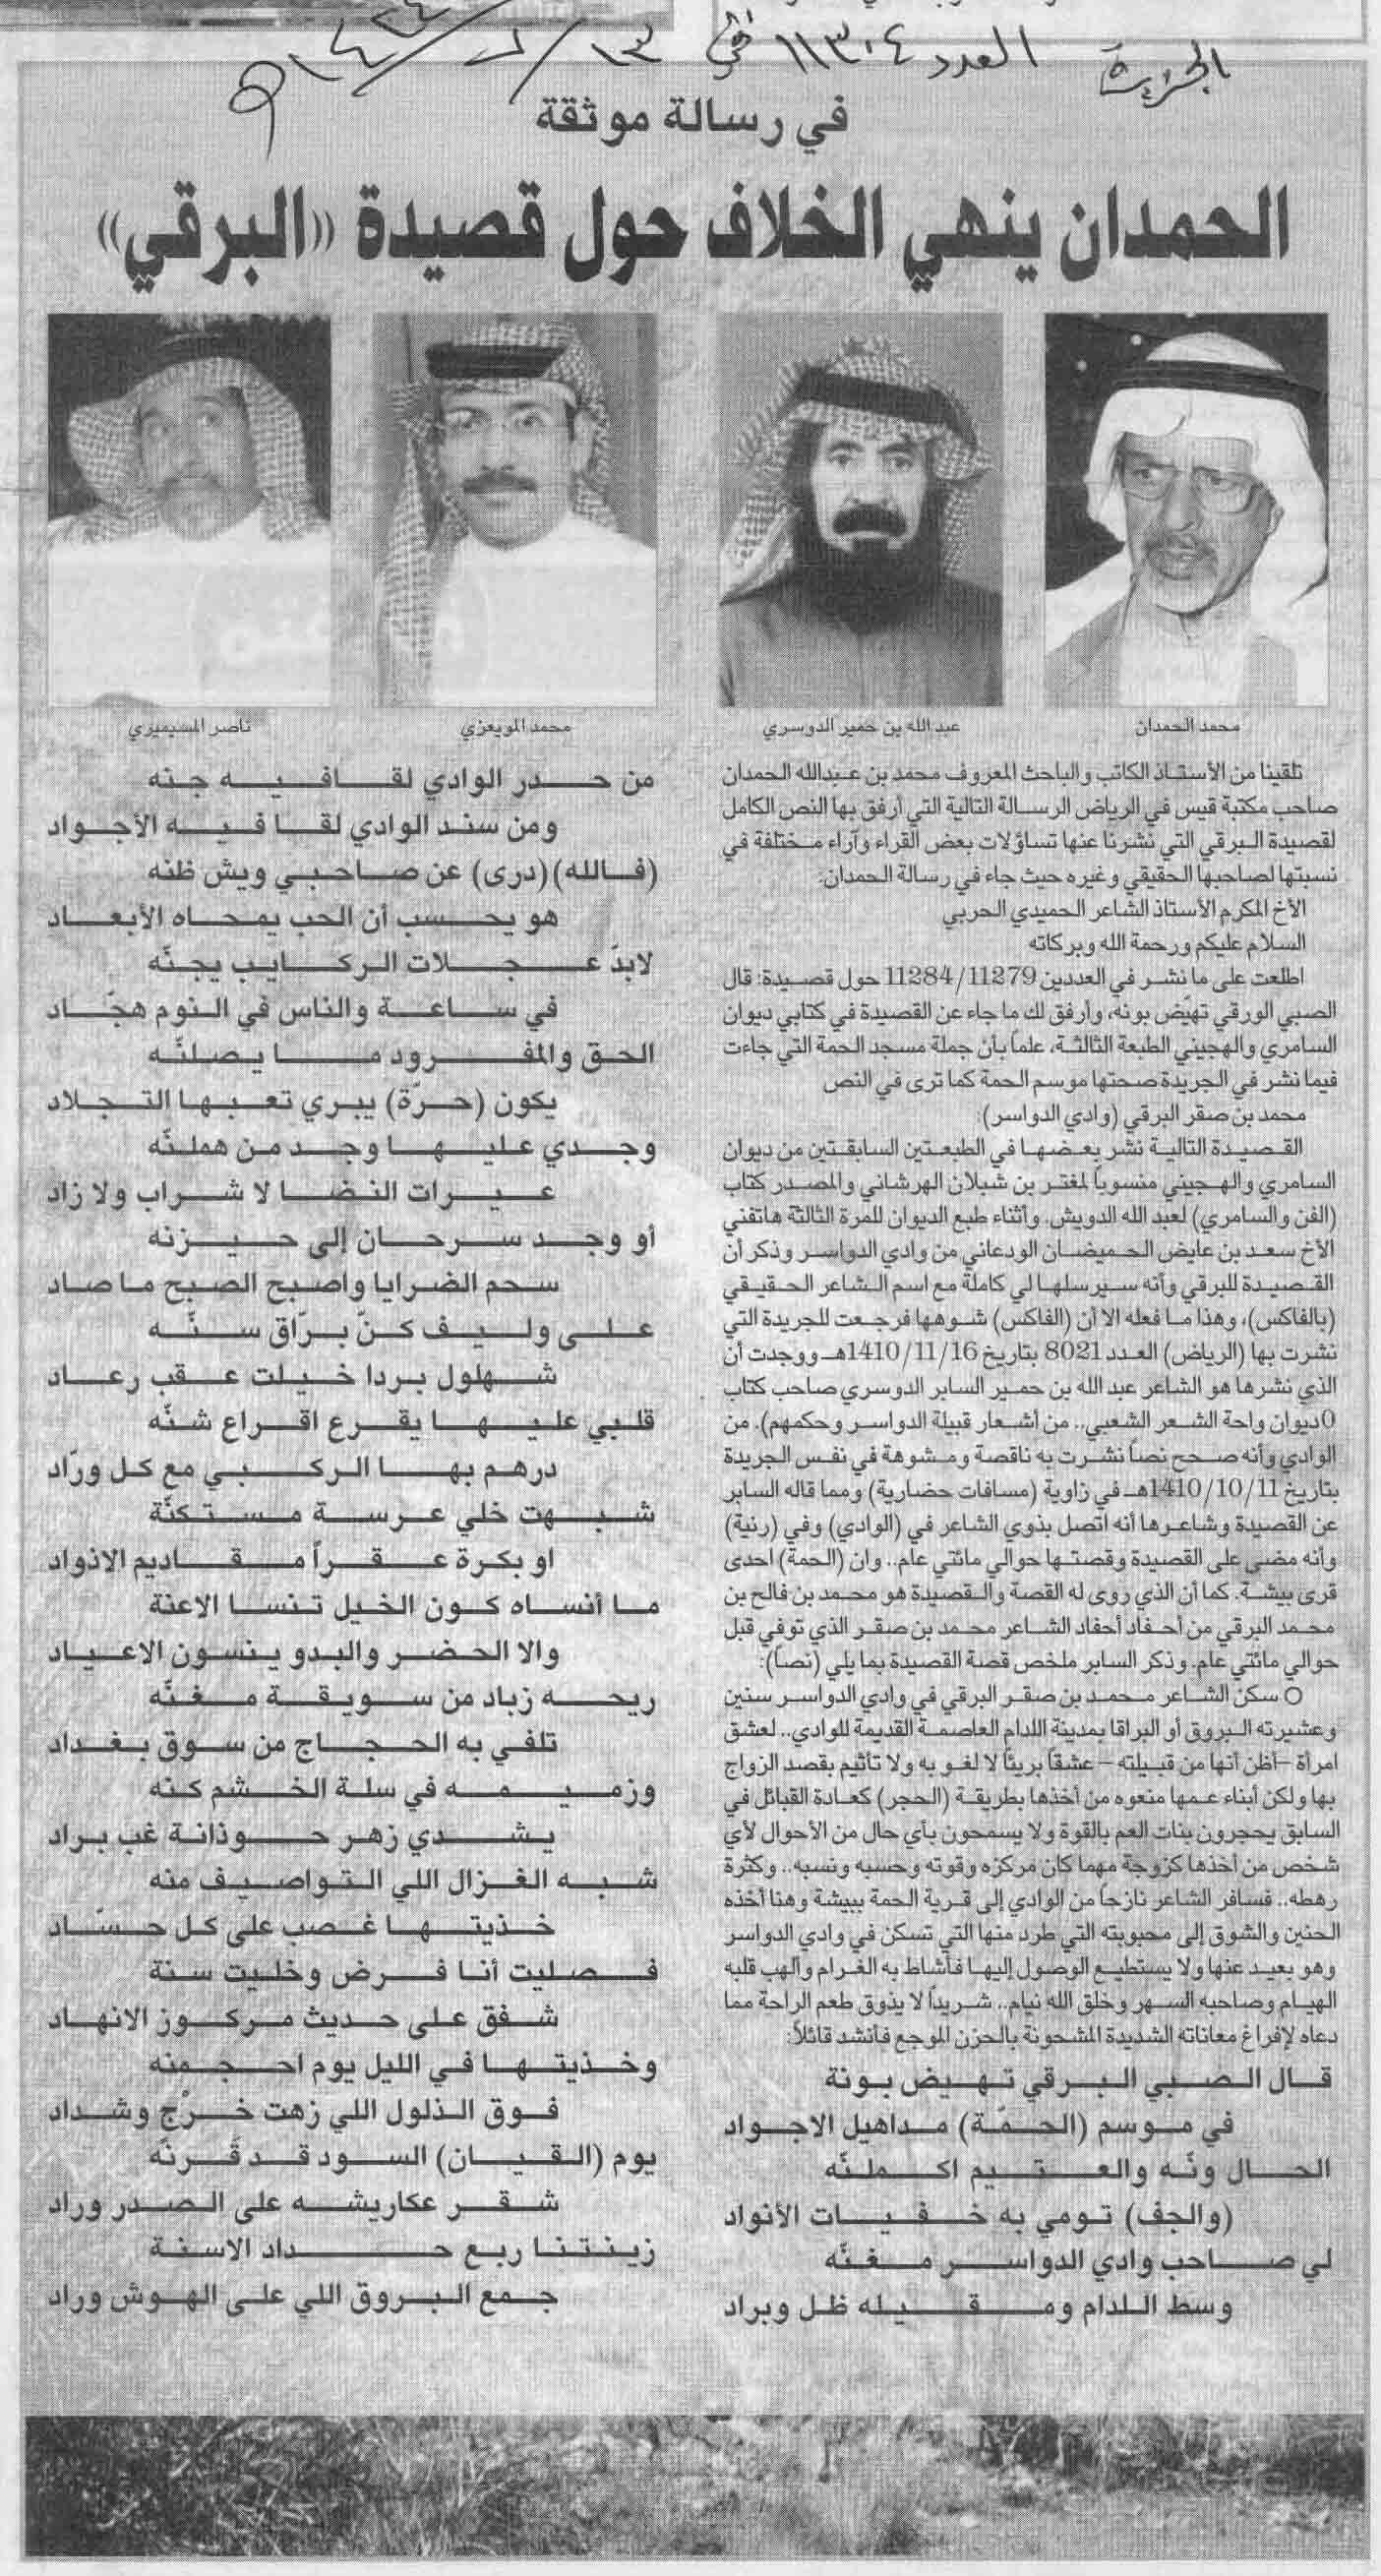 الجزيرة العدد ١١٣٠٤ في ١٣ / ٧ / ١٤٢٤ هـ
في رسالة موثقة
الحمدان ينهي الخلاف حول قصيدة «البرقي»
محمد الحمدان
عبد الله بن حمير الدوسري
محمد المويعزي
ناصر المسيميري
تلقينا من الأستاذ الكاتب والباحث المعروف محمد بن عبدالله الحمدان
صاحب مكتبة قيس في الرياض الرسالة التالية التي أرفق بها النص الكامل
لقصيدة البرقي التي نشرنا عنها تساؤلات بعض القراء وآراء مختلفة في
نسبتها لصاحبها الحقيقي وغيره حيث جاء في رسالة الحمدان:
الأخ المكرم الأستاذ الشاعر الحميدي الحربي
السلام عليكم ورحمة الله وبركاته
اطلعت على ما نشر في العددين 11279/11284 حول قصيدة: قال
الصبي الورقي تهيّض بونه، وأرفق لك ما جاء عن القصيدة في كتابي ديوان
السامري والهجيني الطبعة الثالثة، علماً بأن جملة مسجد الحمة التي جاءت
فيما نشر في الجريدة صحتها موسم الحمة كما ترى في النص
محمد بن صقر البرقي (وادي الدواسر):
القصيدة التالية نشر بعضها في الطبعتين السابقتين من ديوان
السامري والهجيني منسوباً لمغتر بن شبلان الهرشاني والمصدر كتاب
(الفن والسامري) لعبد الله الدويش. وأثناء طبع الديوان للمرة الثالثة هاتفني
الأخ سعد بن عايض الحميضان الودعاني من وادي الدواسر وذكر أن
القصيدة للبرقي وأنه سيرسلها لي كاملة مع اسم الشاعر الحقيقي
(بالفاكس)، وهذا ما فعله الا أن (الفاكس) شوهها فرجعت للجريدة التي
نشرت بها (الرياض) العدد 8021 بتاريخ 1410/11/16هـ ووجدت أن
الذي نشرها هو الشاعر عبد الله بن حمير السابر الدوسري صاحب كتاب
0ديوان واحة الشعر الشعبي.. من أشعار قبيلة الدواسر وحكمهم). من
الوادي وأنه صحح نصاً نشرت به ناقصة ومشوهة في نفس الجريدة
بتاريخ 1410/10/11هـ في زاوية (مسافات حضارية) ومما قاله السابر
عن القصيدة وشاعرها أنه اتصل بذوي الشاعر في (الوادي) وفي (رنية)
وأنه مضى على القصيدة وقصتها حوالي مائتي عام.. وان (الحمة) احدى
قرى بيشة. كما أن الذي روى له القصة والقصيدة هو محمد بن فالح بن
محمد البرقي من أحفاد أحفاد الشاعر محمد بن صقر الذي توفي قبل
حوالي مائتي عام. وذكر السابر ملخص قصة القصيدة بما يلي (نصاً):
○ سكن الشاعر محمد بن صقر البرقي في وادي الدواسر سنين
وعشيرته البروق أو البراقا بمدينة اللدام العاصمة القديمة للوادي.. لعشق
امرأة –أظن أنها من قبيلته – عشقاً بريئاً لا لغو به ولا تأثيم بقصد الزواج
بها ولكن أبناء عمها منعوه من أخذها بطريقة (الحجر) كعادة القبائل في
السابق يحجرون بنات العم بالقوة ولا يسمحون بأي حال من الأحوال لأي
شخص من أخذها كزوجة مهما كان مركزه وقوته وحسبه ونسبه.. وكثرة
رهطه.. فسافر الشاعر نازحاً من الوادي إلى قرية الحمة ببيشة وهنا أخذه
الحنين والشوق إلى محبوبته التي طرد منها التي تسكن في وادي الدواسر
وهو بعيد عنها ولا يستطيع الوصول إليها فأشاط به الغرام وألهب قلبه
الهيام وصاحبه السهر وخلق الله نيام.. شريداً لا يذوق طعم الراحة مما
دعاه لإفراغ معاناته الشديدة المشحونة بالحزن الموجع فأنشد قائلاً:
قال الصبي البرقي تهيض بونة
في موسم (الحمّة) مداهيل الاجواد
الحال ونّه والعتيم اكملنّه
(والجف) تومي به خفيات الأنواد
لي صاحب وادي الدواسر مغنّه
وسط اللدام ومقيله ظل وبراد
من حدر الوادي لقافيه جنه
ومن سند الوادي لقا فيه الأجواد
(فالله) (درى) عن صاحبي ويش ظنه
هو يحسب أن الحب يمحاه الأبعاد
لابدّ عجلات الركايب يجنّه
في ساعة والناس في النوم هجّاد
الحق والمفرود ما يصلنّه
يكون (حرّة) يبري تعبها التجلاد
وجدي عليها وجد من هملنّه
عيرات النضا لا شراب ولا زاد
أو وجد سرحان إلى حيزنه
سحم الضرايا واصبح الصبح ما صاد
على وليف كنّ برّاق سنّه
شهلول بردا خيلت عقب رعاد
قلبي عليها يقرع اقراع شنّه
درهم بها الركبي مع كل ورّاد
شبهت خلي عرسة مستكنّة
او بكرة عقراً مقاديم الاذواد
ما أنساه كون الخيل تنسا الاعنة
والا الحضر والبدو ينسون الاعياد
ريحه زباد من سويقة مغنّه
تلفي به الحجاج من سوق بغداد
وزميمه في سلة الخشم كنه
يشدي زهر حوذانة غب براد
شبه الغزال اللي التواصيف منه
خذيتها غصب على كل حسّاد
فصليت أنا فرض وخليت سنة
شفق على حديث مركوز الانهاد
وخذيتها في الليل يوم احجمنه
فوق الذلول اللي زهت خرْج وشداد
يوم (القيان) السود قد قَرنّه
شقر عكاريشه على الصدر وراد
زينتنا ربع حداد الاسنة
جمع البروق اللي على الهوش وراد